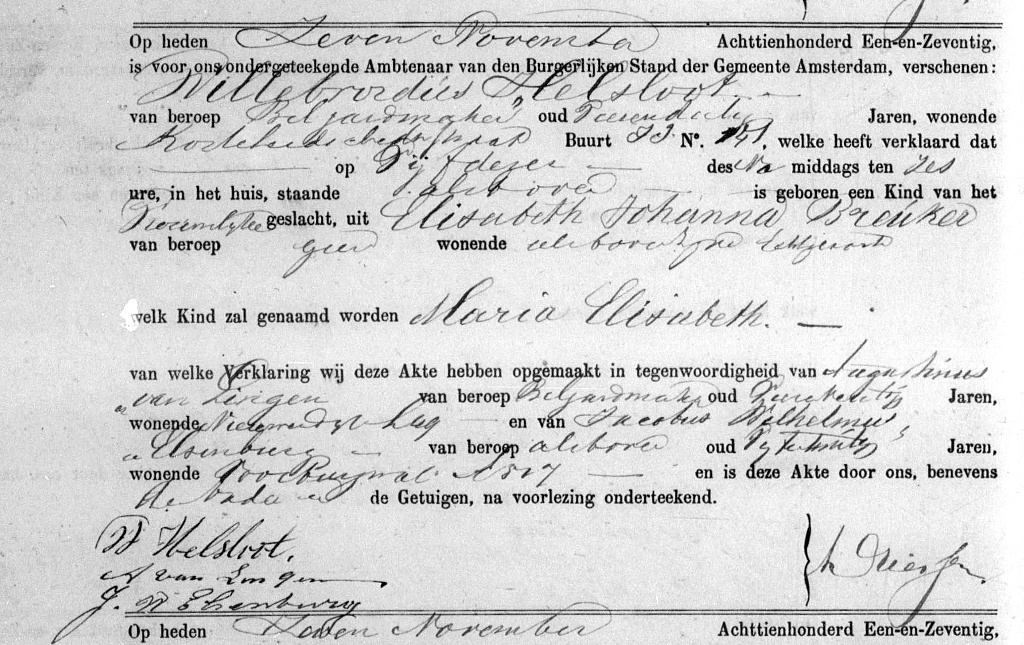 Op heden Zeven November Achttienhonderd Een-en-Zeventig,
is voor ons ondergeteekende Ambtenaar van den Burgerlijken Stand der Gemeente Amsterdam, verschenen:
Willebrordus Helsloot
van beroep Biljardmaker oud Jaren, wonende
Buurt No. welke heeft verklaard dat
op Vijf dezer des Na middags ten Zes
ure, in het huis, staande alsboven is geboren een Kind van het
Vrouwelijke geslacht, uit Elisabeth Johanna Breuker
van beroep geen wonende alsboven zijne Echtgenoote
welk Kind zal genaamd worden Maria Elisabeth.
van welke Verklaring wij deze Akte hebben opgemaakt in tegenwoordigheid van Augustinus
van Lingen van beroep Biljardmaker oud Jaren,
wonende en van Jacobus Wilhelmus
Elsenburg van beroep alsboven oud Jaren,
wonende en is deze Akte door ons, benevens
de Vader en de Getuigen, na voorlezing onderteekend.
W Helsloot.
A van Lingen
J. W Elsenburg
Op heden Zeven November Achttienhonderd Een-en-Zeventig,